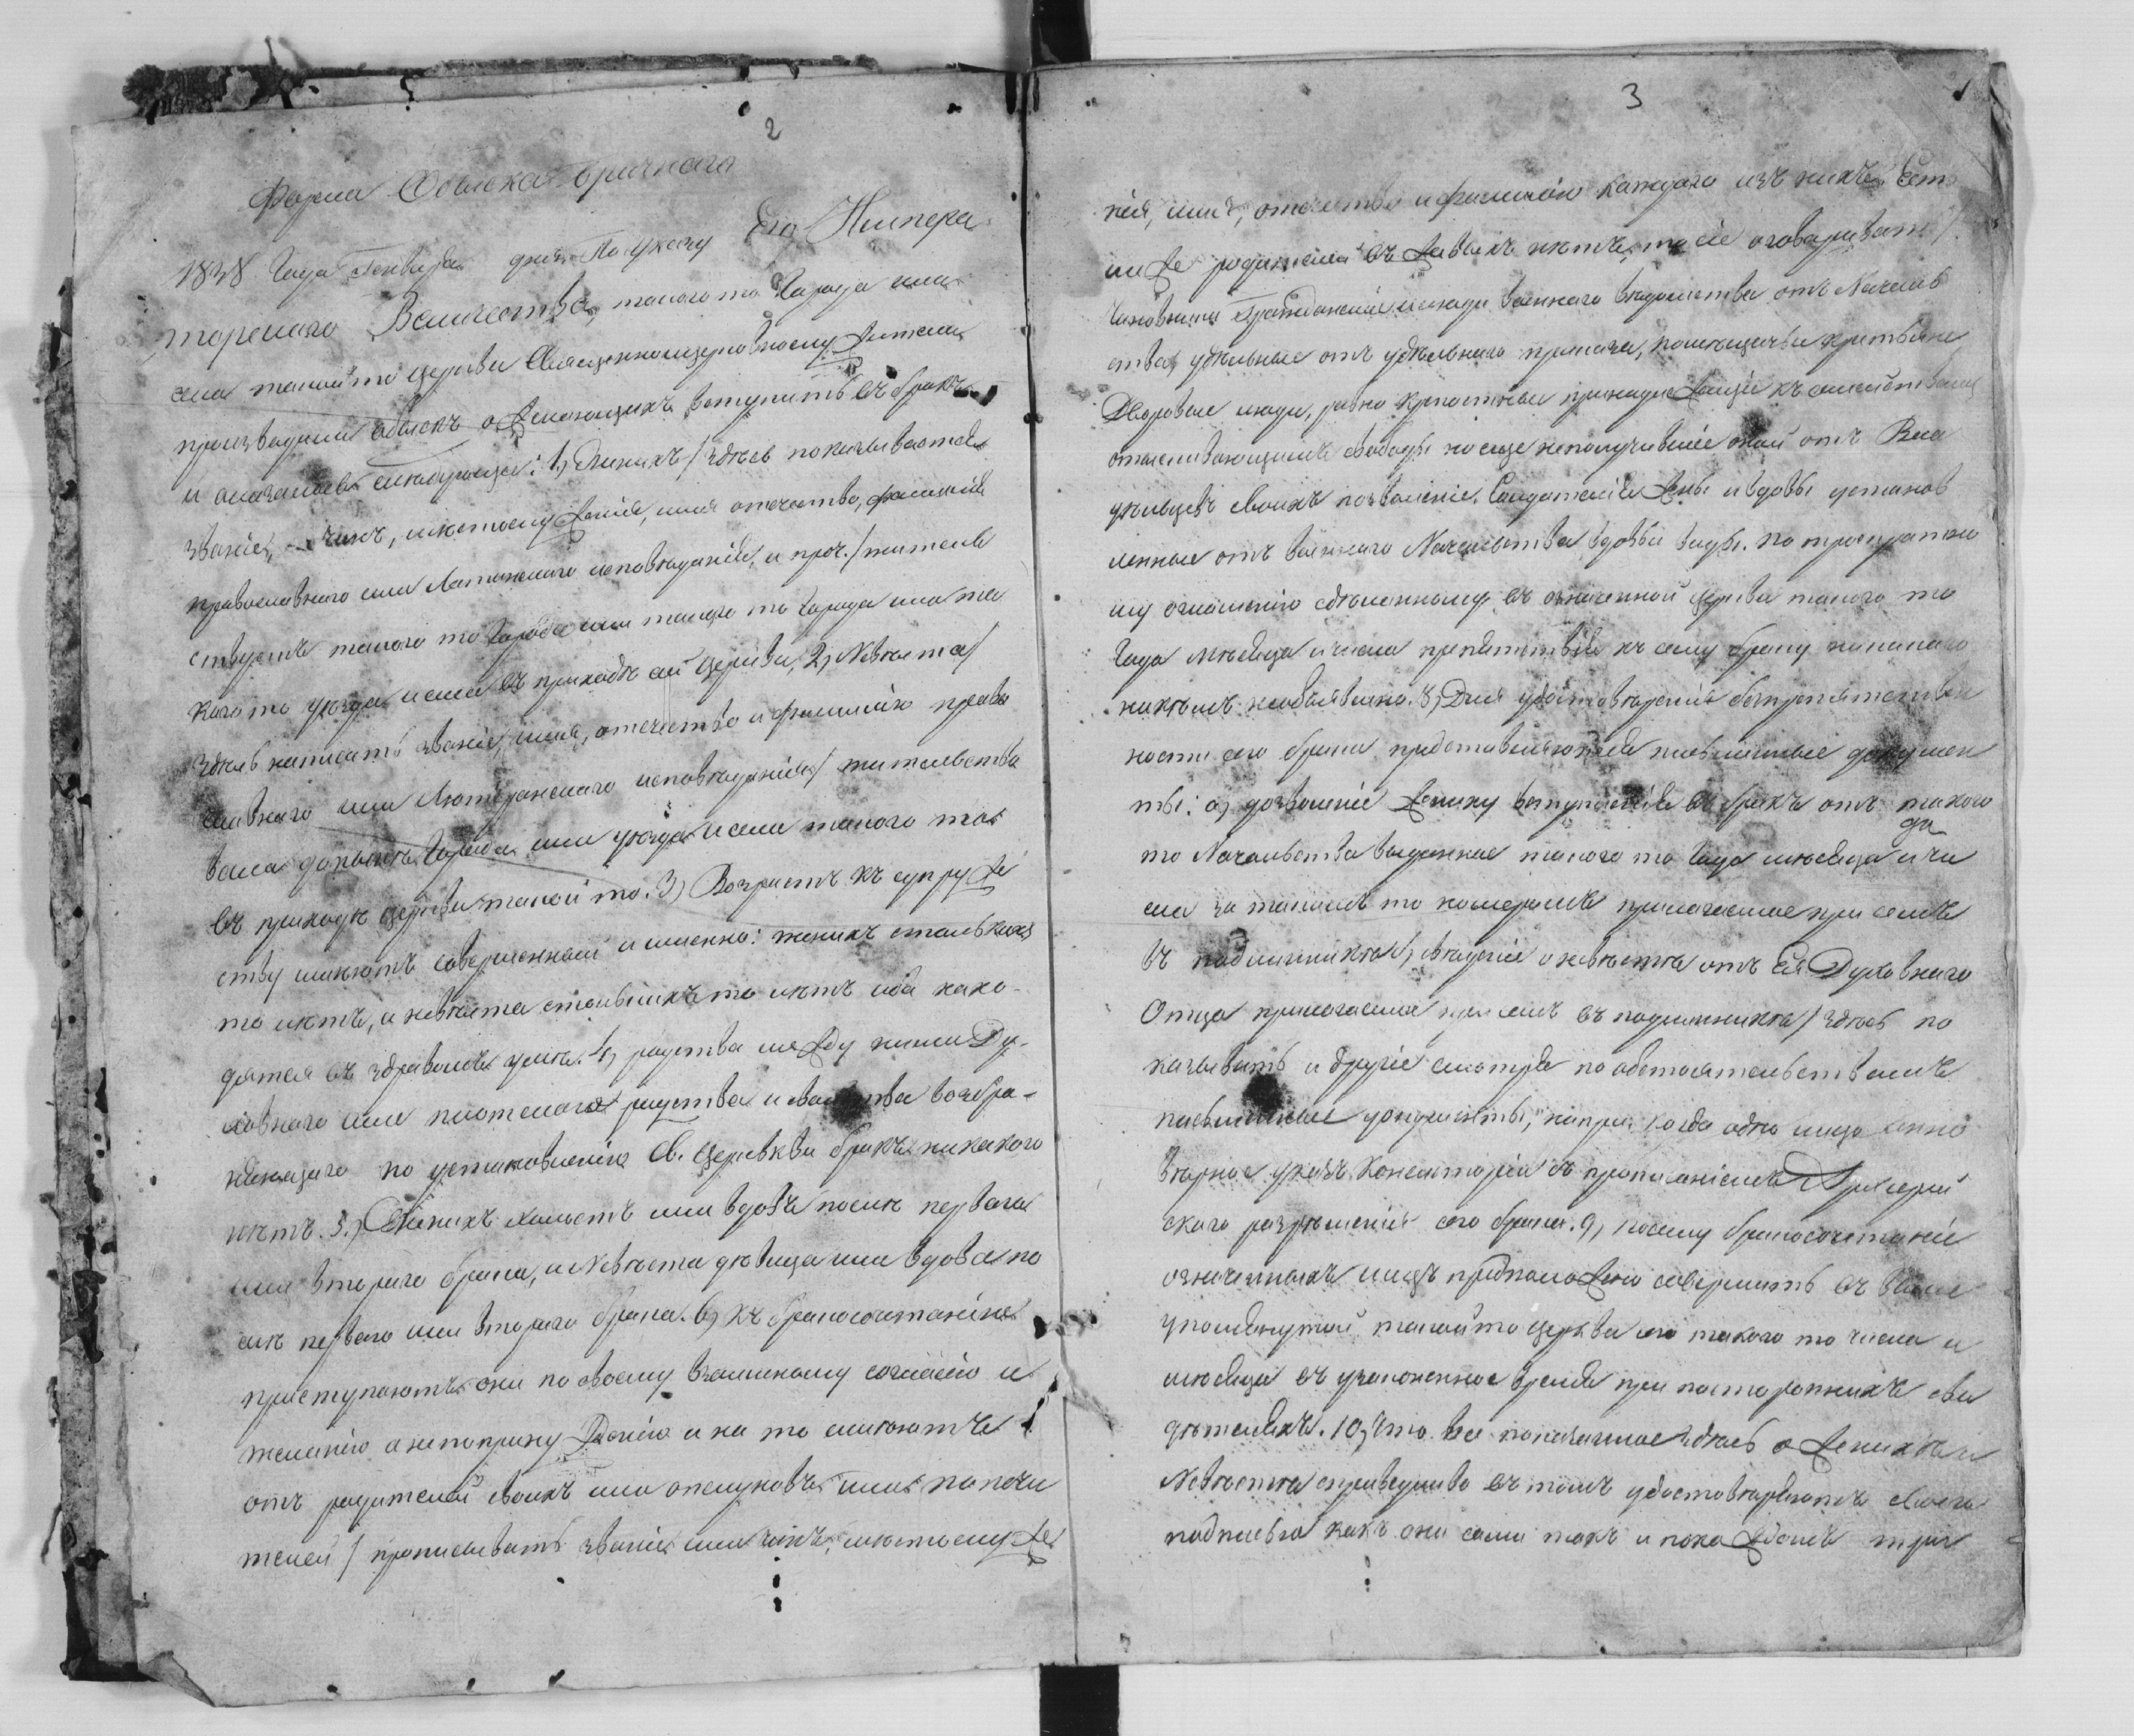 2
Форма Обыска брачнаго
1838 Года Генваря дня По указу Его Импера
торскаго Величества, такого то Города или
села такой то церкви Священноцерковнослужители
производили обыскъ о желающихъ вступить въ бракъ
и оказалось следующее: 1, Женихъ / здѣсь показывается
званіе, чинъ, мѣсто служенія, имя отечество, фамилія
православнаго или Латинскаго исповѣданія, и проч. / жительст
ствуетъ такого то Города или такого то Города или та
кого то уѣзда и села въ приходѣ сей церкви, 2, Невѣста /
здѣсь написать званіе, имя, отечество и фамилію право
славнаго или Лютеранскаго исповѣданія / жительство
вала донынѣ Города или уѣзда и села такого то
въ приходѣ церкви такой то. 3) Возрастъ къ супруже
ству имѣютъ совершенный и именно: женихъ столькихъ
то лѣтъ, и невѣста столькихъ то лѣтъ оба нахо-
дятся въ здравомъ умѣ. 4, родства между ними Ду-
ховнаго или плотскаго родства и свойства возбра-
няющаго по установленію Св. Церкви бракъ никакого
нѣтъ. 5.) Женихъ холостъ или вдовъ послѣ перваго
или втораго брака, и Невѣста дѣвица или вдова по
слѣ перваго или втораго брака. 6, къ бракосочетанію
приступаютъ они по своему взаимному согласію и
желанію а не по принужденію и на то имѣютъ
отъ родителей своихъ или опекуновъ или попечи
телей / прописывать званіе или чинъ, мѣсто служе
3
нія, имя, отечество и фамилію каждаго изъ нихъ. Есть
ли же родителей въ живыхъ нѣтъ, то сіе оговаривать /.
Чиновники Гражданскіе и люди военнаго вѣдомства отъ Начальс
тва, удѣльные отъ удѣльнаго приказа, помѣщичьи крестьяне
Дворовые люди, равно крѣпостные принадлежащіе къ семействамъ
отыскивающимъ свободы но еще неполучившіе оной отъ Вла
дѣльцевъ своихъ позволеніе. Солдатскія жены и вдовы установ
ленные отъ военнаго Начальства вдовьи виды. По троекратно
му оглашенію сдѣланному въ означенной церкви такого то
Года мѣсяца и числа препятствія къ сему браку никакого
никѣмъ необъявлено. 8, Для удостовѣренія безпрепятствен
ности сего брака представляются письменные докумен
ты: а, дозволеніе жениху вступленія въ бракъ отъ такого
да
то Начальства выданное такого то Года мѣсяца и чи
сла за такимъ то номеромъ прилагаемое при семъ
въ подлинникѣ, , свѣденіе о невѣстѣ отъ Ея Духовнаго
Отца прилагаемое при семъ въ подлинникѣ / здѣсь по
казывать и другіе смотря по обстоятельствамъ
письменные документы, напри: когда одно лице инно
вѣрное указъ Консисторіи съ прописаніемъ Архіерей
скаго разрѣшенія сего брака. 9, посему бракосочетаніе
означенныхъ лицъ предположено совершить въ выше
упомянутой такой то церкви сего такого то числа и
мѣсяца въ узаконенное время при постороннихъ сви
дѣтеляхъ. 10, Что все показанное здѣсь о женихѣ и
Невѣстѣ справедливо въ томъ удостовѣряютъ своею
подписью какъ они сами такъ и по каждомъ три